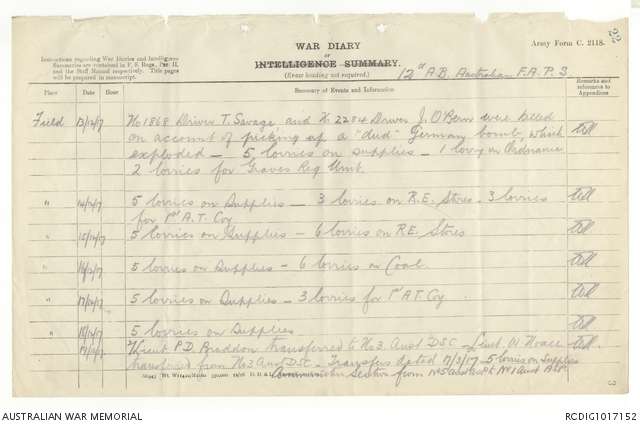 22
WAR DIARY
or
INTELLIGENCE SUMMARY.
(Erase heading not required.)
Army Form C. 2118.
Instructions regarding War Diaries and Intelligence
Summaries are contained in F. S. Regs., Part II.
and the Staff Manual respectively. Title pages
will be prepared in manuscript.
A.B. Australian F.A.P. 3
Place
Date
Hour
Summary of Events and Information
Remarks and
references to
Appendices
Field 13/12/17 No 1868 Driver T. Savage and No 2284 Driver J. were killed
on account of picking up a "dud" Germany bomb, which
exploded – 5 lorries on supplies – 1 lorry on Ordnance
2 lorries for Graves Reg Unit.
" 14/12/17 5 lorries on Supplies – 3 lorries on R.E. Stores – 3 lorries
for 1st A.T. Coy
" 15/12/17 5 lorries on Supplies – 6 lorries on R.E. Stores
" 16/12/17 5 lorries on Supplies – 6 lorries on Coal.
" 17/12/17 5 lorries on Supplies – 3 lorries for 1st A.T. Coy
" 18/12/17 5 lorries on Supplies
P.D. Braddon transferred to No 3. Aust DSC – Lieut
transferred from No 3 Aust DSC – Transfers dated – 5 lorries on Supplies
from
AUSTRALIAN WAR MEMORIAL
RCDIG1017152